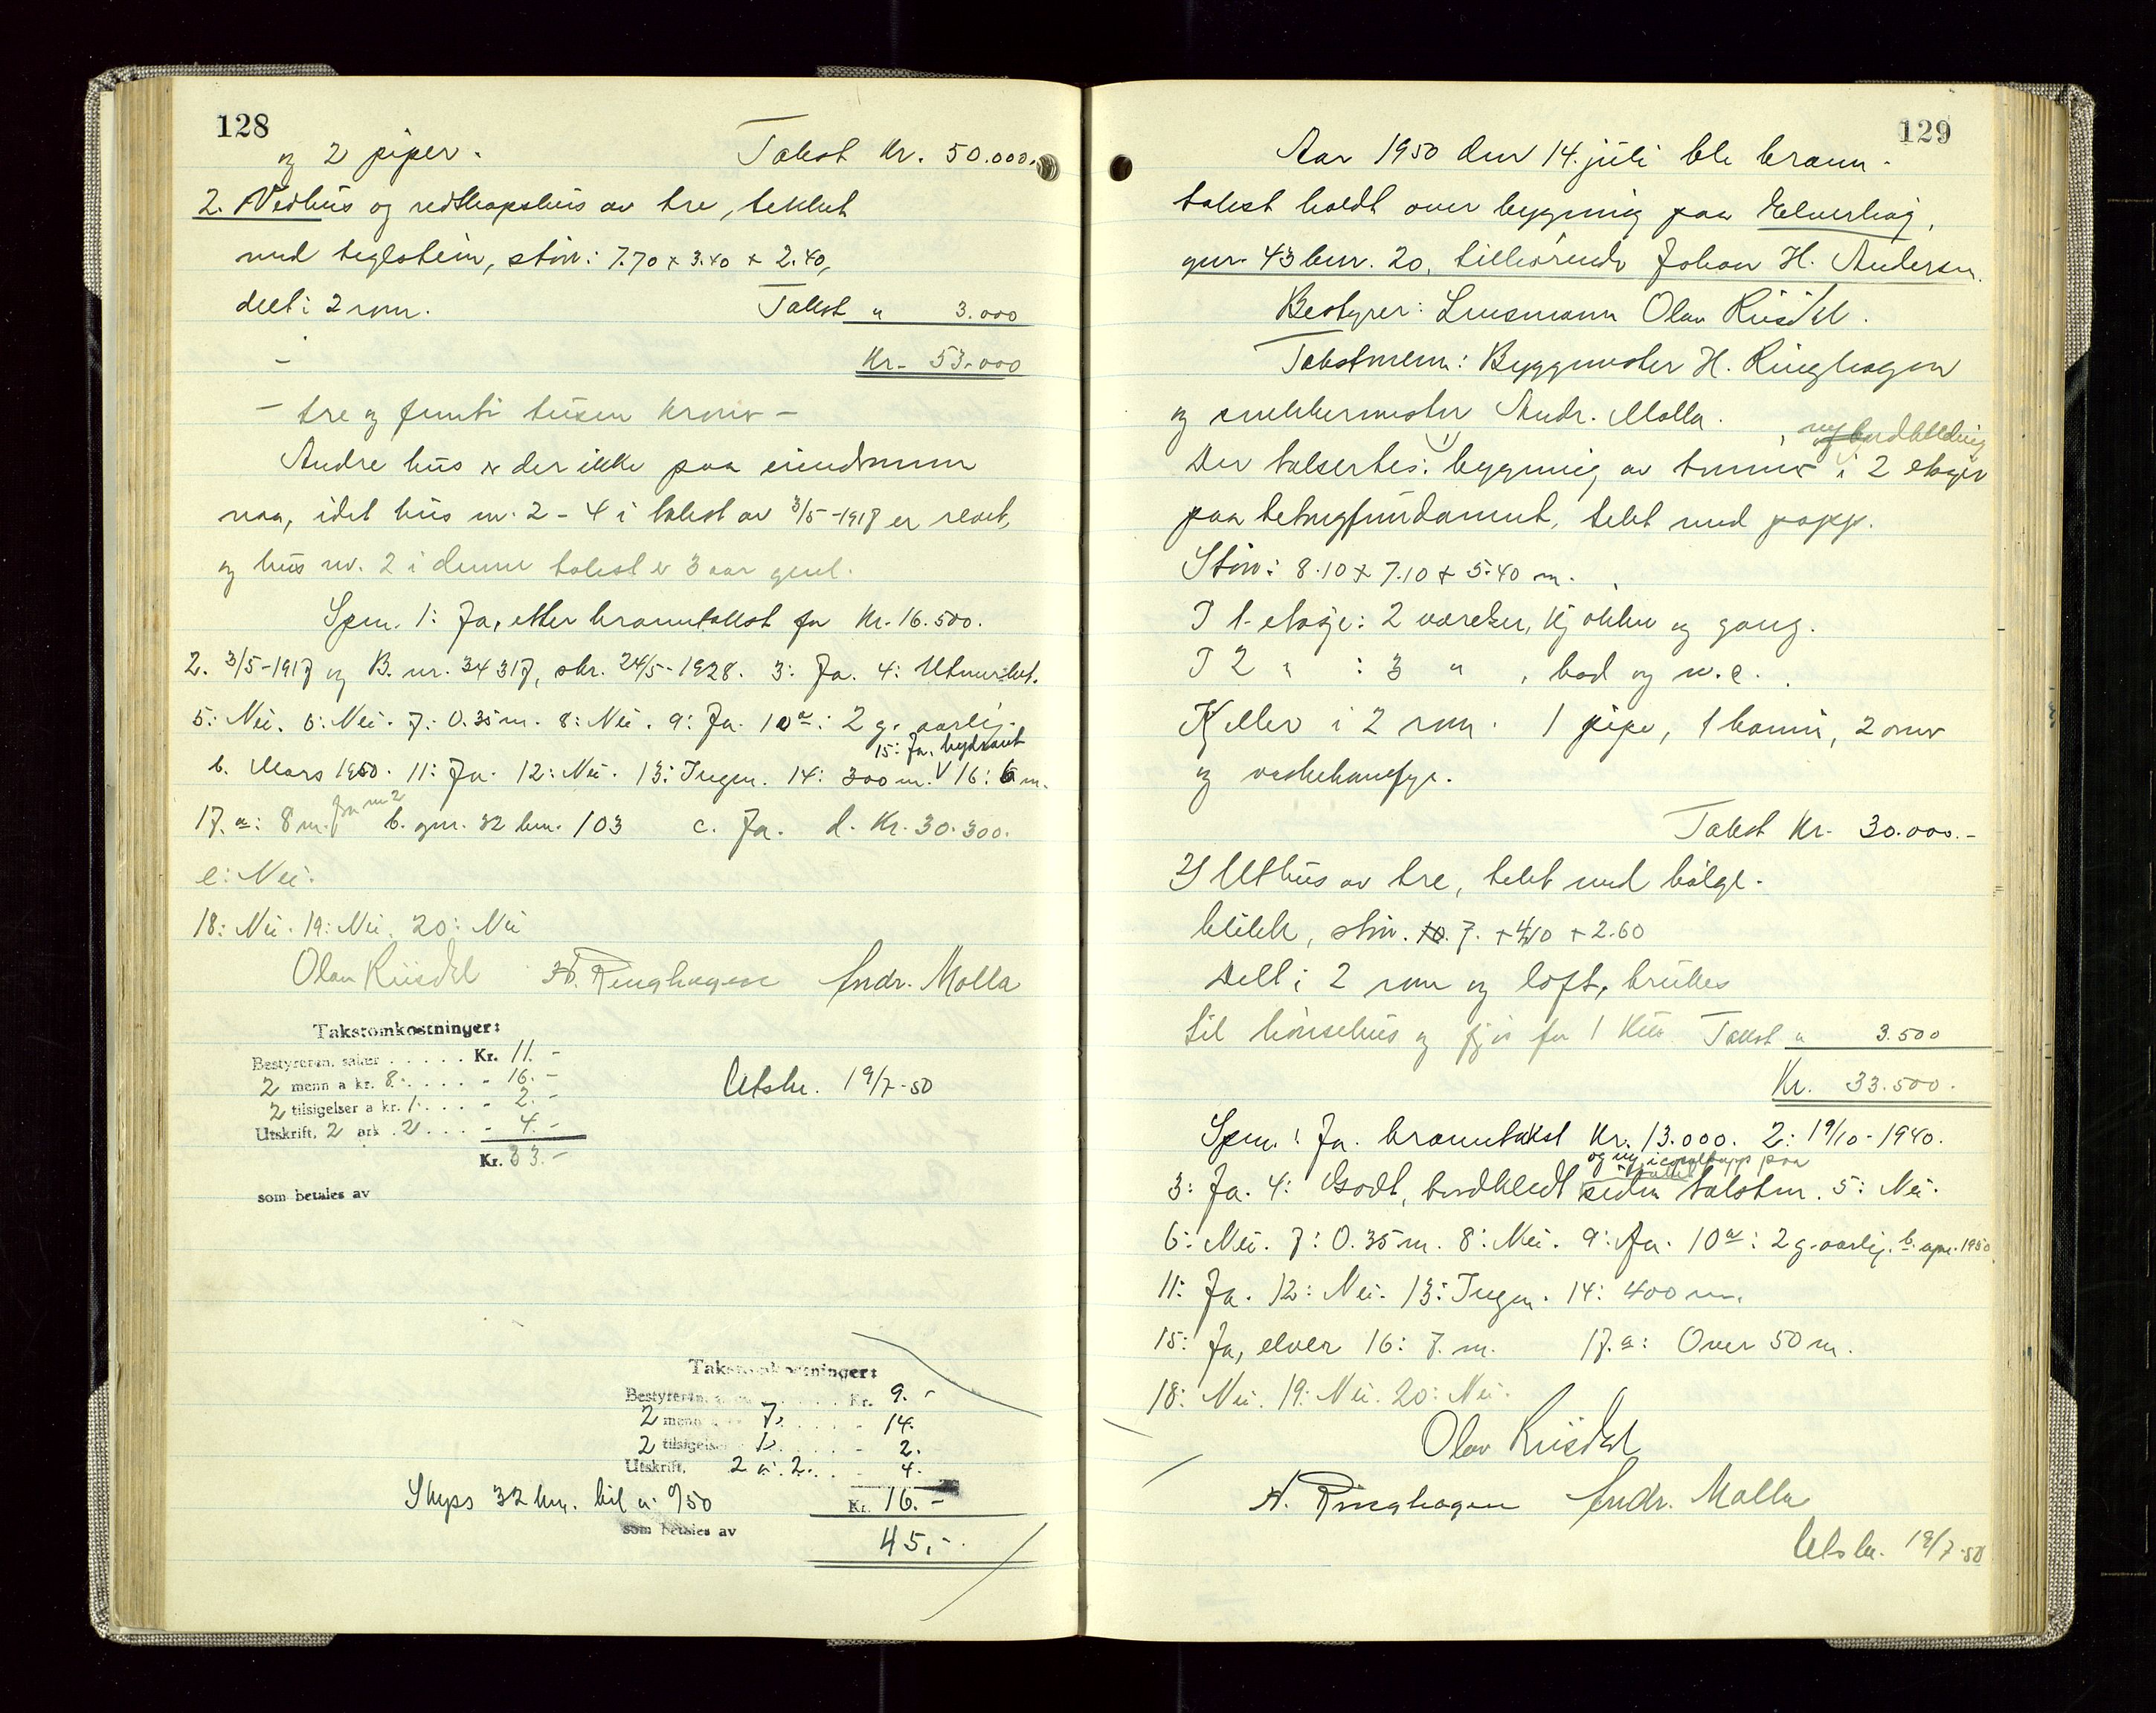 128
og 2 piper. Takst Kr. 50.000.
2. Vedhus og redskapshus av tre, tekket
med teglstein, størr: 7.70 x 3.40 x 2.40,
delt i 2 rom. Takst " 3.000
Kr. 53.000
- tre og femti tusen kroner -
Andre hus er der ikke paa eiendommen
naa, idet hus nr. 2 - 4 i takst av 3/5-1917 er revet,
og hus nr. 2 i denne takst er 3 aar gml.
Spm. 1: Ja, etter branntakst for Kr. 16.500.
2. 3/5-1917 og B. nr. 34317, skr. 24/5-1928. 3: Ja. 4: Utmerket.
5: Nei. 6: Nei. 7: 0.35 m. 8: Nei. 9: Ja. 10 a: 2 g. aarlig.
15: Ja. hydrant
b. Mars 1950. 11: Ja. 12: Nei. 13: Ingen. 14: 300 m. V 16: 6 m.
17. a: 8 m. fra nr 2 b. gnr. 32 bnr. 103 c. Ja. d. Kr. 30.300.
e: Nei.
18: Nei. 19: Nei. 20: Nei
Olav Riisdal H. Ringhagen Andr. Molla
Takstomkostninger:
Bestyreren, salær ..... Kr. 11.-
2 menn a kr. 8. .... - 16.-
2 tilsigelser a kr. 1. ... - 2.-
Utskrift, 2 ark .2 ... - 4.-
Kr. 33.-
som betales av
Utskr. 19/7-50
Takstomkostninger:
Bestyreren, Kr. 9.-
2 menn 7. ..... - 14.
2 tilsigelser 1. ..... - 2.
Utskrift, 2 a 2. .. - 4.
Skyss 32 km. bil a 0/50 Kr. 16.-
som betales av
45.-
129
Aar 1950 den 14. juli ble brann-
takst holdt over bygning paa Elverhøj,
gnr. 43 bnr. 20, tilhørende Johan H. Andersen.
Bestyrer: Lensmann Olav Riisdal.
Takstmenn: Byggmester H. Ringhagen
og snekkermester Andr. Molla.
, ny bordkledning
Der takseres: 1) bygning av tømmer i 2 etager
paa betongfundament, tekt med papp.
Størr: 8.10 x 7.10 x 5.40 m.
I 1. etage: 2 værelser, kjøkken og gang.
I 2 " : 3 " , bad og w.c.
Kjeller i 2 rom. 1 pipe, 1 kamin, 2 ovner
og vaskekomfyr.
Takst Kr. 30.000.-
2) Uthus av tre, tekt med bølge-
blikk, størr. 7. x 4.10 x 2.60
Delt i 2 rom og loft, brukes
til hønsehus og fjøs for 1 ku Takst " 3.500
Kr. 33.500.
Spm. 1 Ja. branntakst Kr. 13.000. 2: 19/10-1940.
og ny paa
3: Ja. 4: Godt, bordkledt siden taksten. 5: Nei.
6: Nei. 7: 0.35 m. 8: Nei. 9: Ja. 10 a: 2 g. aarlig. b. apr. 1950
11: Ja. 12: Nei. 13: Ingen. 14: 400 m.
15: Ja, elver 16: 7. m. 17. a: Over 50 m.
18: Nei. 19: Nei. 20: Nei.
Olav Riisdal
H. Ringhagen Andr. Molla
Utskr. 19/7-50